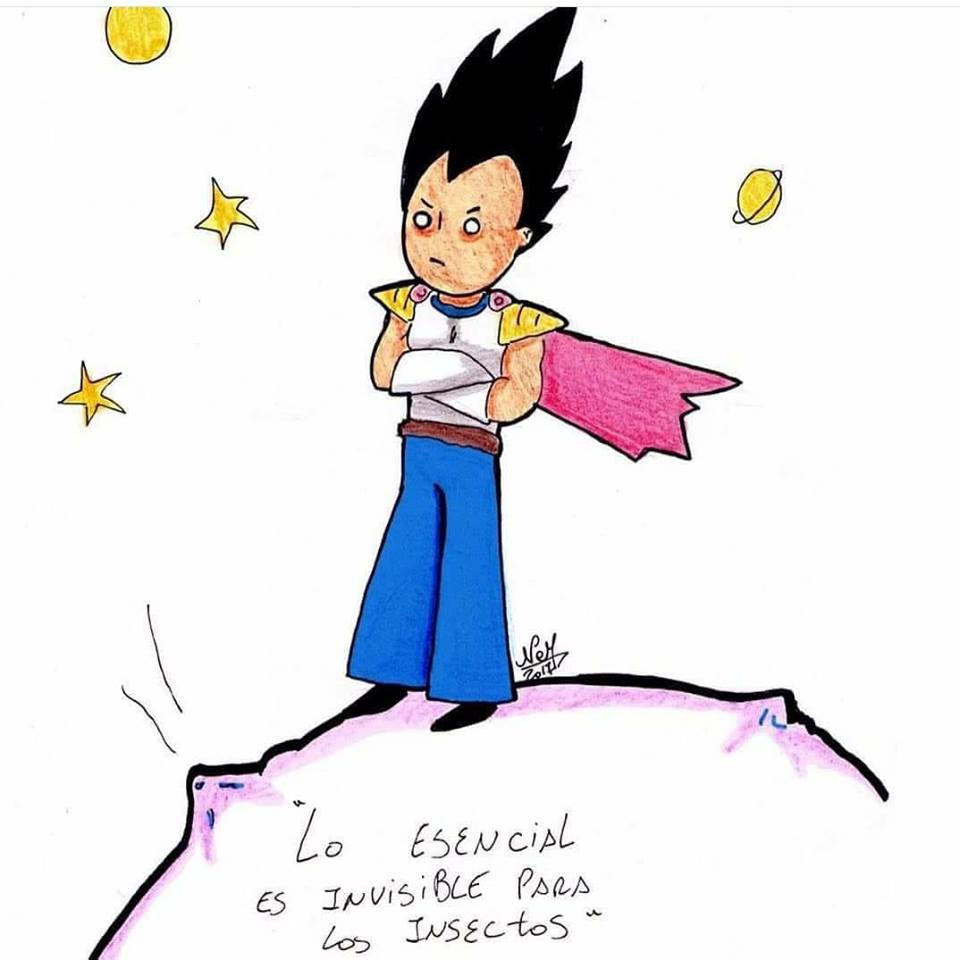 NeM
2017
"Lo ESENCiAL
ES INViSiBLE PARA
Los INSECtoS"